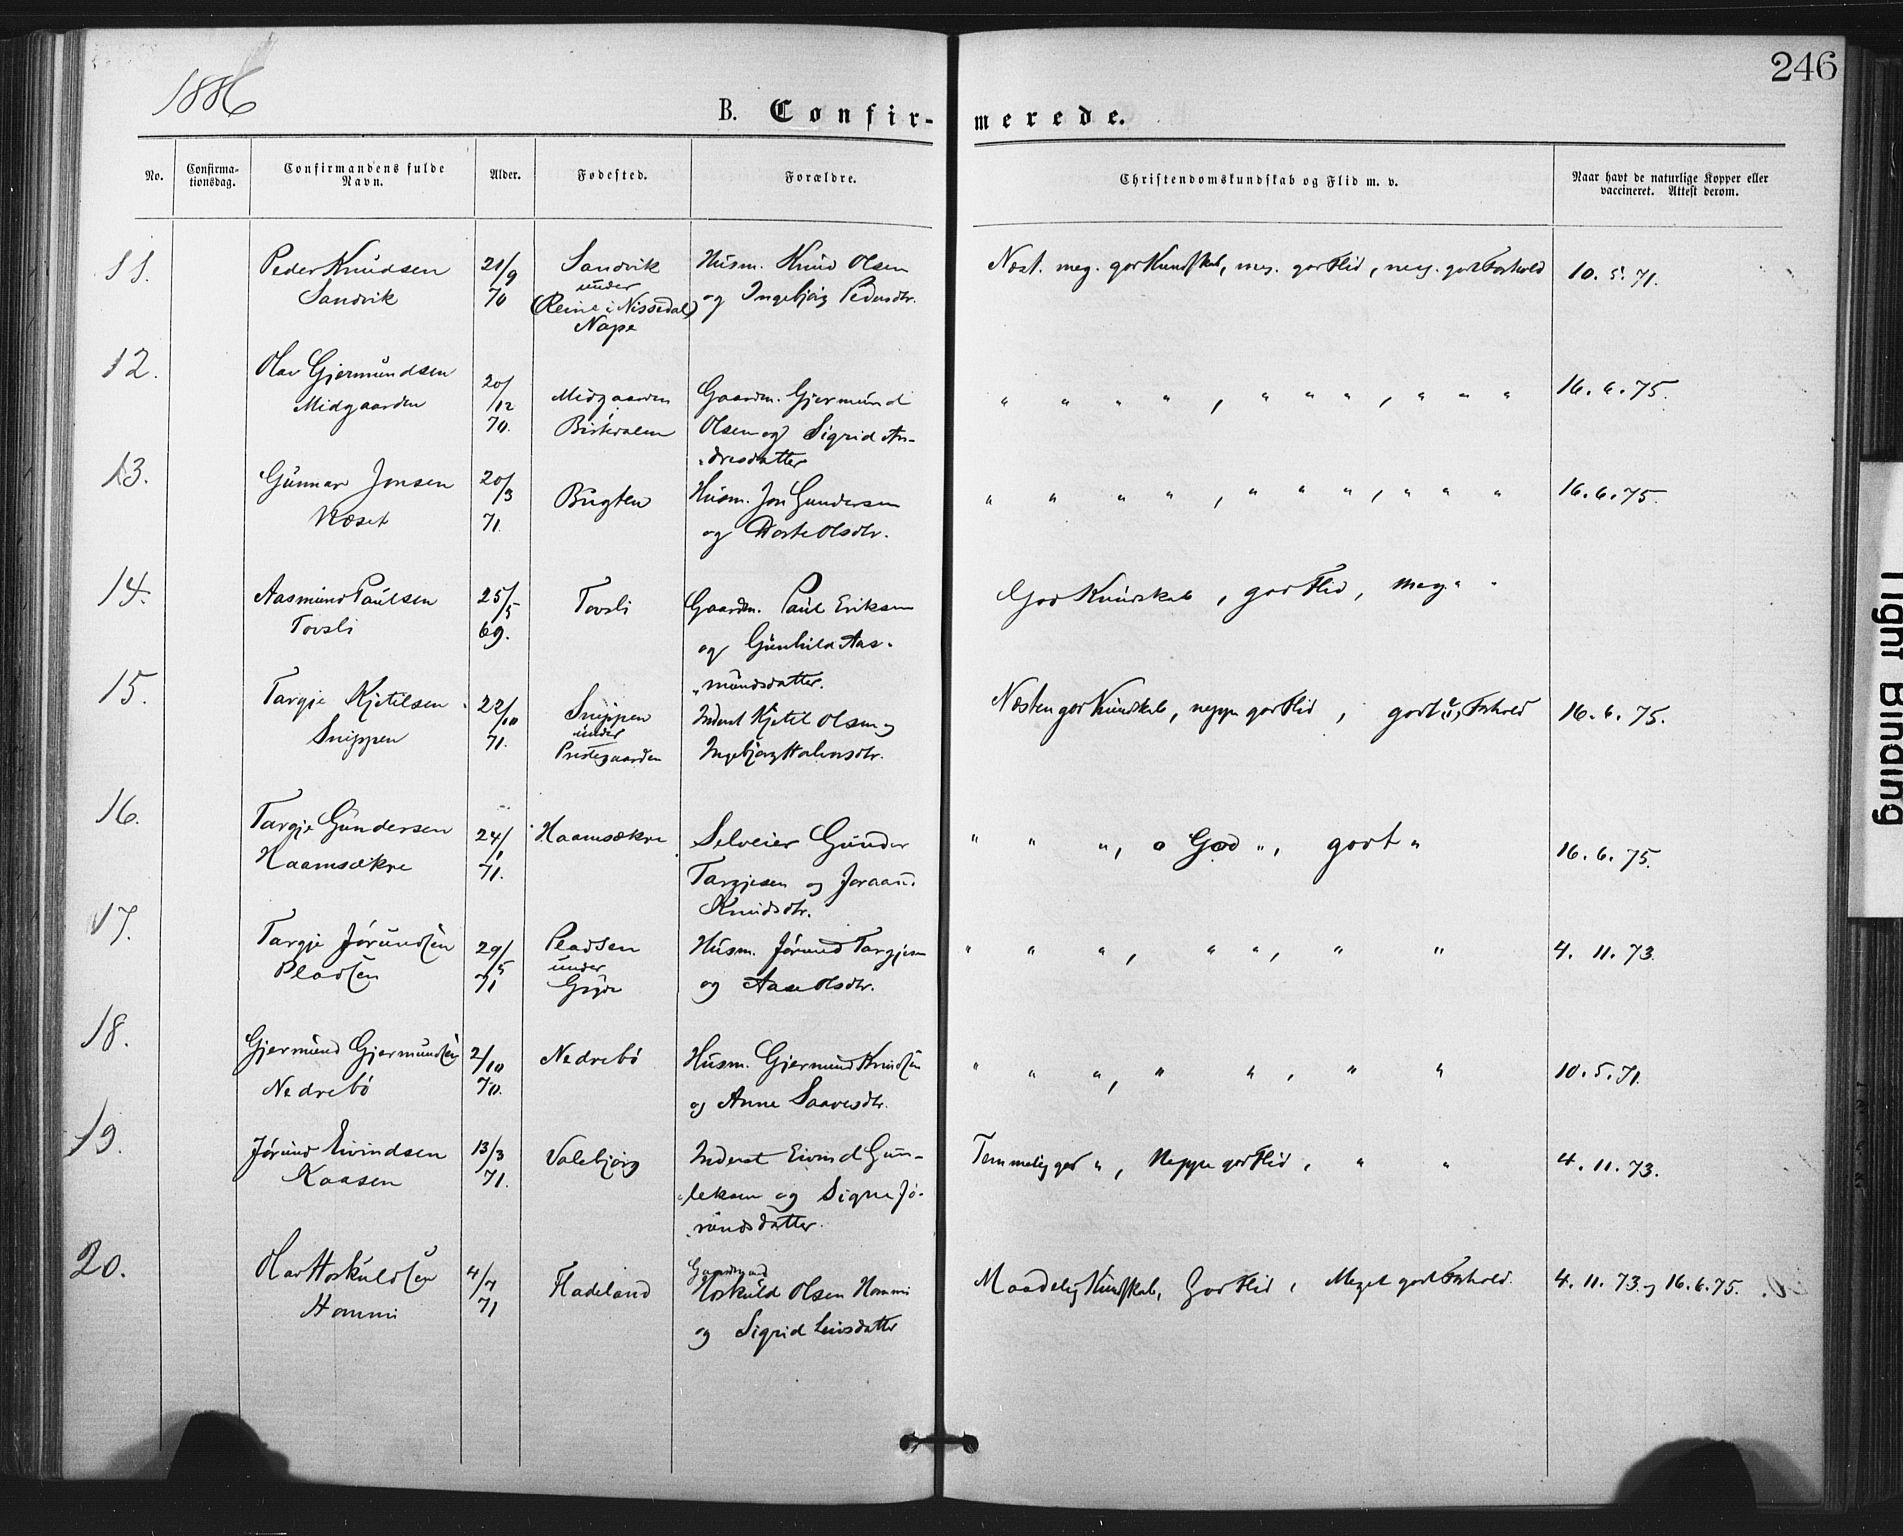 1886
246
B. Confir- merede.
No.
Confirma-
tionsdag.
Confirmandens fulde
Navn.
Alder.
Fødested.
Forældre.
Christendomskundskab og Flid m. v.
Naar havt de naturlige Kopper eller
vaccineret. Attest derom.
11. Peder Knudsen 21/9 Sandvik Husm. Knud Olsen Næst. meg. god Kundskab, meg. god Flid, meg. godt Forhold 10. 5. 71.
Sandvik 70 under og Ingebjørg Pedersdtr.
(Reine i Nissedal)
Nape
12. Olav Gjermundsen 20/12 Midgaarden Gaardm. Gjermund " " " " , " " " , " " " 16. 6. 75.
Midgaarden 70. Olsen og Sigrid An-
dresdatter
13. Gunnar Jonsen 20/3 Bugten Husm. Jon Gundersen " " " " , " " " , " " " 16. 6. 75.
Næset 71. og Dorte Olsdtr.
14. Aasmund Paulsen 25/5 Tovsli Gaardm. Paul Eriksen God Kundskab, god Flid, meg " "
Tovsli 69. og Gunhild Aas-
mundsdatter.
15. Targje Kjetilsen 22/10 Snippen Inderst Kjetil Olsen og Næsten god Kundskab, neppe god Flid, godt Forhold 16. 6. 75.
Snippen 71. under Ingebjørg
Prestegaarden
16. Targje Gundersen 24/1 Haamsækre Selveier Gunder " " " , God " , godt " 16. 6. 75.
Haamsækre 71. Targjesen og Joraand
Knudsdtr.
17. Targje Jørundsen 29/5 Pladsen Husm. Jørund Targjesen " " " , " " , " " 4. 11. 73.
Pladsen 71 under og Aase Olsdtr.
18. Gjermund Gjermundsen 2/10 Nedrebø Husm. Gjermund Knudsen " " " , " " , " " 10. 5. 71.
Nedrebø 70. og Anne Saavesdtr.
19. Jørund Eivindsen 13/3 Valebjørg Inderst Eivind Gun- Temmelig god " , Neppe god Flid, " " 4. 11. 73.
Kaasen 71. leksen og Signe Jø-
rundsdatter.
20. Olav Hoskuldsen 4/7 Fladeland Gaardmand
Hommi 71 Hoskuld Olsen Hommi Maadelig Kundskab, God Flid, Meget godt Forhold. 4. 11. 73 og 16. 6. 75.
og Sigrid
Tight Binding